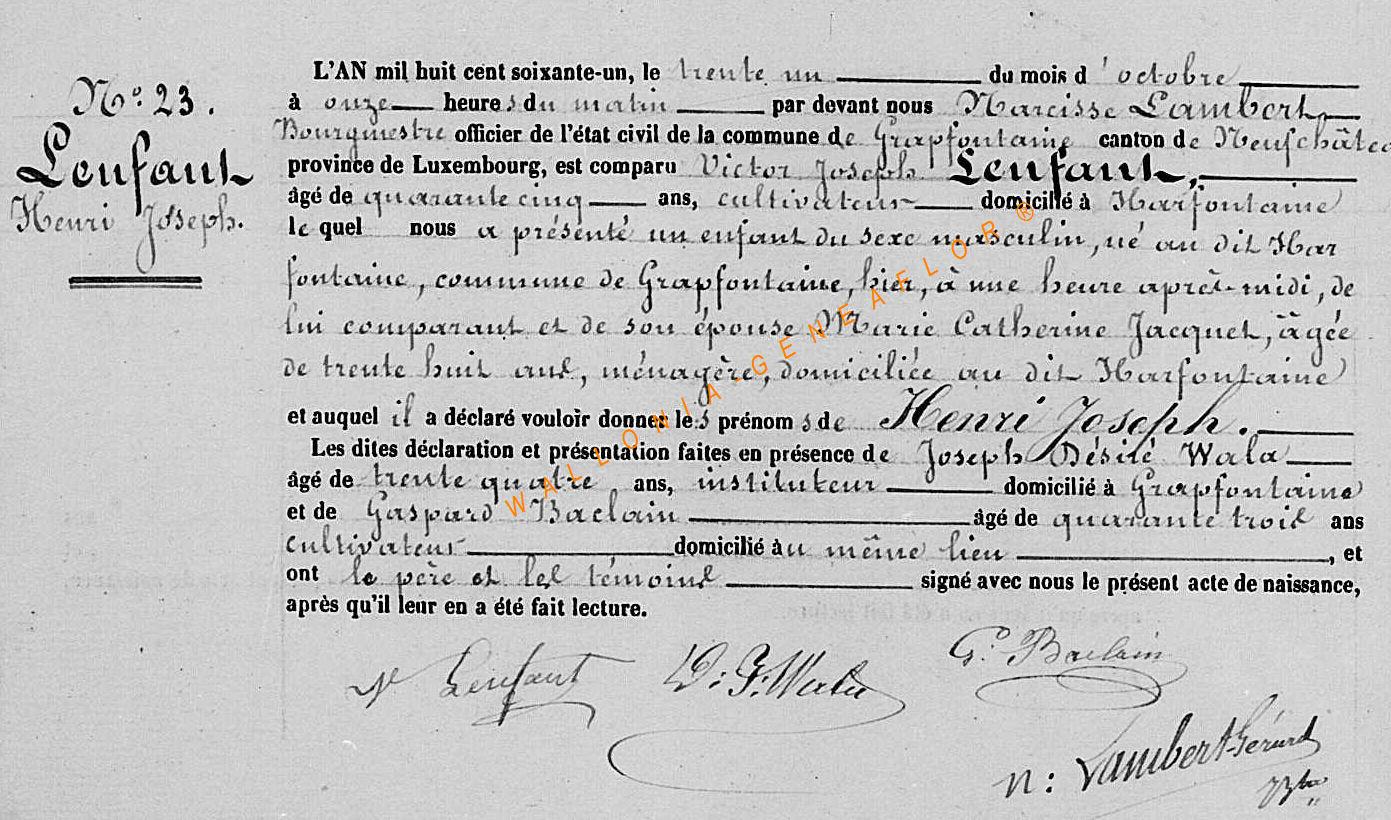 N° 23.
Lenfant
Henri Joseph.
L'AN mil huit cent soixante-un, le trente un du mois d'octobre
à onze heures du matin par devant nous Narcisse Lambert,
Bourgmestre officier de l'état civil de la commune de Grapfontaine canton de Neufchâteau
province de Luxembourg, est comparu Victor Joseph Lenfant,
âgé de quarante cinq ans, cultivateur domicilié à Harfontaine
le quel nous a présenté un enfant du sexe masculin, né au dit Har
fontaine, commune de Grapfontaine, hier, à une heure après-midi, de
lui comparant et de son épouse Marie Catherine Jacquet, âgée
de trente huit ans, ménagère, domiciliée au dit Harfontaine
et auquel il a déclaré vouloir donner les prénoms de Henri Joseph.
Les dites déclaration et présentation faites en présence de Joseph Désiré Wala
âgé de trente quatre ans, instituteur domicilié à Grapfontaine
et de Gaspard Baclain âgé de quarante trois ans
cultivateur domicilié au même lieu, et
ont le père et les témoins signé avec nous le présent acte de naissance,
après qu'il leur en a été fait lecture.
WALLONIA-GENEAFLOR®
V Lenfant
D: J: Wala
G. Baclain
N: Lambert-Gérard